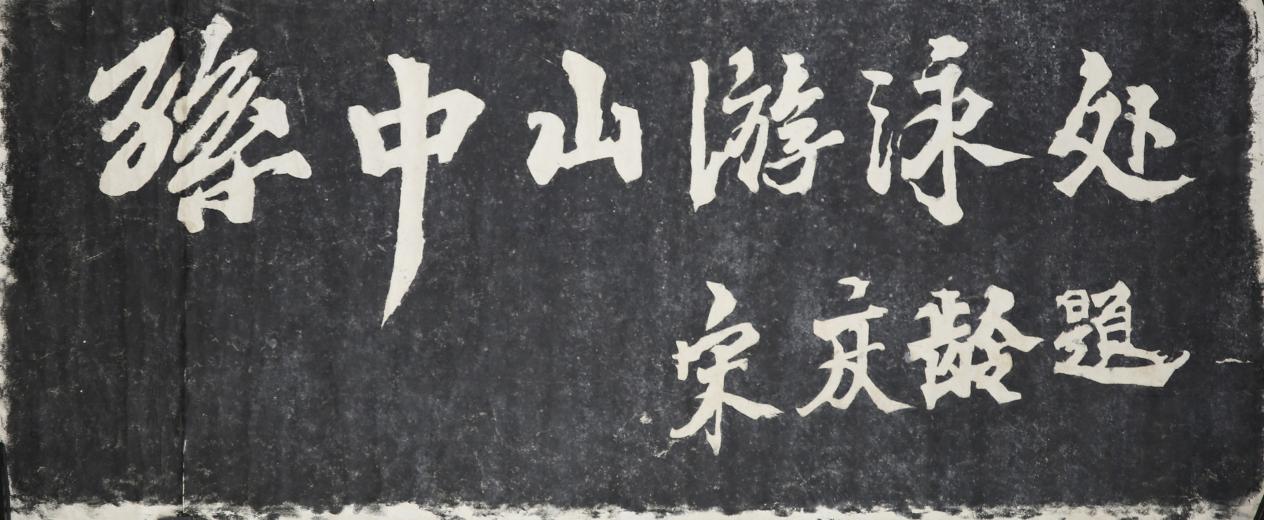 孫中山游泳处
宋庆龄題